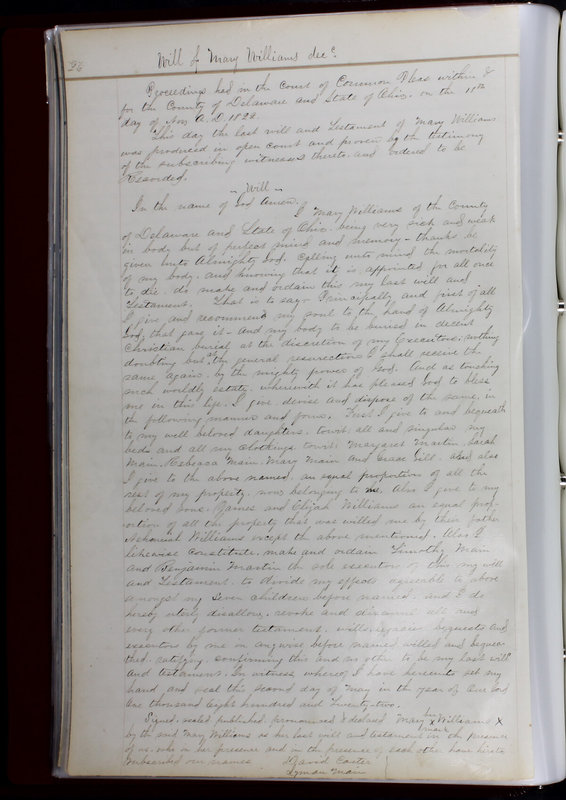 26 Will of Mary Williams dec^d.
Proceedings had in the Court of Common Pleas within &
for the County of Delaware and State of Ohio. on the 11th
day of Nov A.D. 1822.
This day the last will and testament of Mary Williams
was produced in open court and proven by the testimony
of the subscribing witnesses thereto and ordered to be
Recorded.
Will
In the name of God Amen.
I Mary Williams of the County
of Delaware and State of Ohio. being very sick and weak
in body but of perfect mind and memory - thanks be
given unto Almighty God. Calling unto mind the mortality
of my body. and knowing that it is appointed for all once
to die. do make and ordain this my last will and
Testament. That is to say - Principally and first of all
I give and recommend my soul to the hand of Almighty
God, that gave it - and my body to be buried in decent
Christian burial at the discretion of my Executors, nothing
doubting but at the general resurrection I shall receive the
same again. by the mighty power of God. And as touching
such worldly estate. wherewith it has pleased God to bless
me in this life. I give. devise and dispose of the same, in
the following manner and form. First I give to and bequeath
to my well beloved daughters. towit. all and singular my
beds and all my clothings towit. Margaret Martin. Sarah
Main. Rebecca Main. Mary Main and Gill. also
I give to the above named. an equal proportion of all the
rest of my property. now belonging to me. Also I give to my
beloved sons. James and Elijah Williams an equal prop-
ortion of all the property that was willed me by their father
Williams except the above mentioned. Also I
likewise constitute. make and ordain Timothy Main
and Benjamin Martin the sole executors of this my will
and Testament. to divide my effects agreeable to above
amongst my seven children before named. and I do
hereby utterly disallow. revoke and disannul all and
every other former testament. wills. legacies bequests and
executors by me in anywise before named willed and bequea-
thed. ratifying. confirming this and no other to be my last will
and testament. In witness whereof I have hereunto set my
hand and seal this second day of May in the year of Our Lord
One thousand eight hundred and twenty-two.
Signed. sealed published. pronounced & declared Mary her x mark Williams x
by the said Mary Williams as her last will and testament in the presence
of us. who in her presence and in the presence of each other have hereto
subscribed our names David Easter
Lyman Main